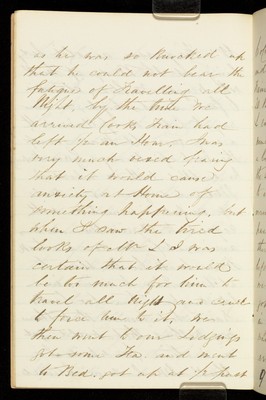 as he was so knocked up
that he could not bear the
fatigue of Travelling all
Night. by the time we
arrived Cooks Train had
left ½ an Hour. I was
very much vexed fearing
that it would cause
anxiety at Home of
something happening. but
when I saw the tired
looks of Mr L I was
certain that it would
be too much for him to
travel all Night and
to force him to it. we
then went to our Lodgings
got some Tea and went
to Bed. got up at ½ past